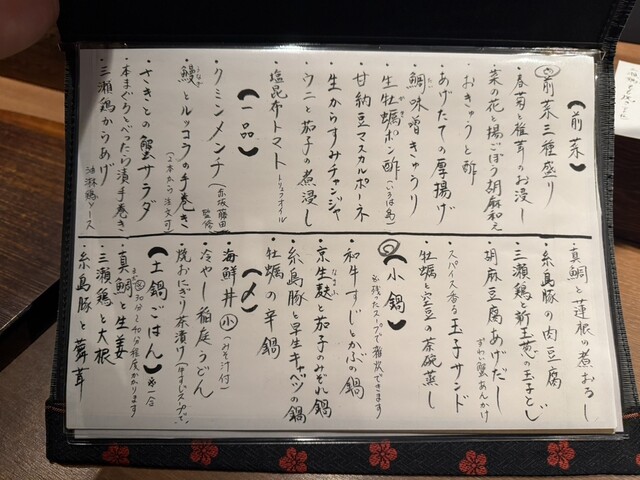 【前菜】
◎前菜三種盛り
・春菊と椎茸のお浸し
・菜の花と揚ごぼう胡麻和え
・おきゅうと酢
・あげたての厚揚げ
・鯛味噌きゅうり
・生牡蠣ポン酢(いろは島)
・甘納豆マスカルポーネ
・生からすみチャンジャ
・ウニと茄子の煮浸し
・塩昆布トマト トリュフオイル
【一品】
・クミンメンチ(赤坂藤田監修)
・鰻とルッコラの手巻き(2本から注文可)
・ささきとの蟹サラダ
・本まぐろとべったら漬手巻き
・三瀬鶏からあげ 油淋鶏ソース
・真鯛と蓮根の煮おろし
・糸島豚の肉豆腐
・三瀬鶏と新玉葱の玉子とじ
・胡麻豆腐あげだし ずわい蟹あんかけ
・スパイス香る玉子サンド
・牡蠣と空豆の茶碗蒸し
◎【小鍋】
※残ったスープで雑炊できます
・和牛すじとかぶの鍋
・京生麩と茄子のみぞれ鍋
・糸島豚と早生キャベツの鍋
・牡蠣の辛鍋
【〆】
・海鮮丼 小(みそ汁付)
・冷やし稲庭うどん
・焼おにぎり茶漬け(牛すじスープ)
【土鍋ごはん】※一合
30分〜40分程度かかります
・真鯛と生姜
・三瀬鶏と大根
・糸島豚と舞茸